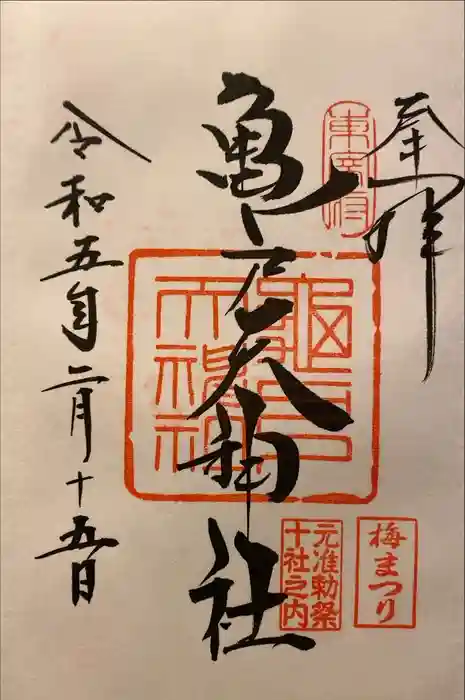 奉拝
東宰府
亀戸天神社
亀戸天神社
元准勅祭
十社之内
梅まつり
令和五年二月十五日